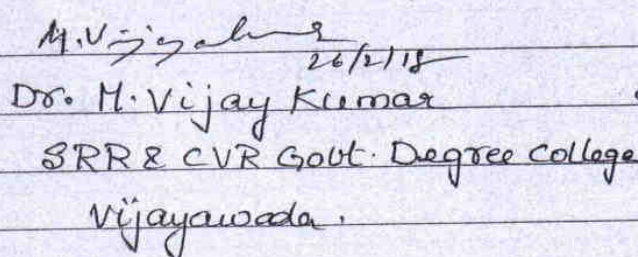 M. Vijayakumar
26/2/18
Dr. M. Vijay Kumar
SRR & CVR Govt. Degree College
Vijayawada.